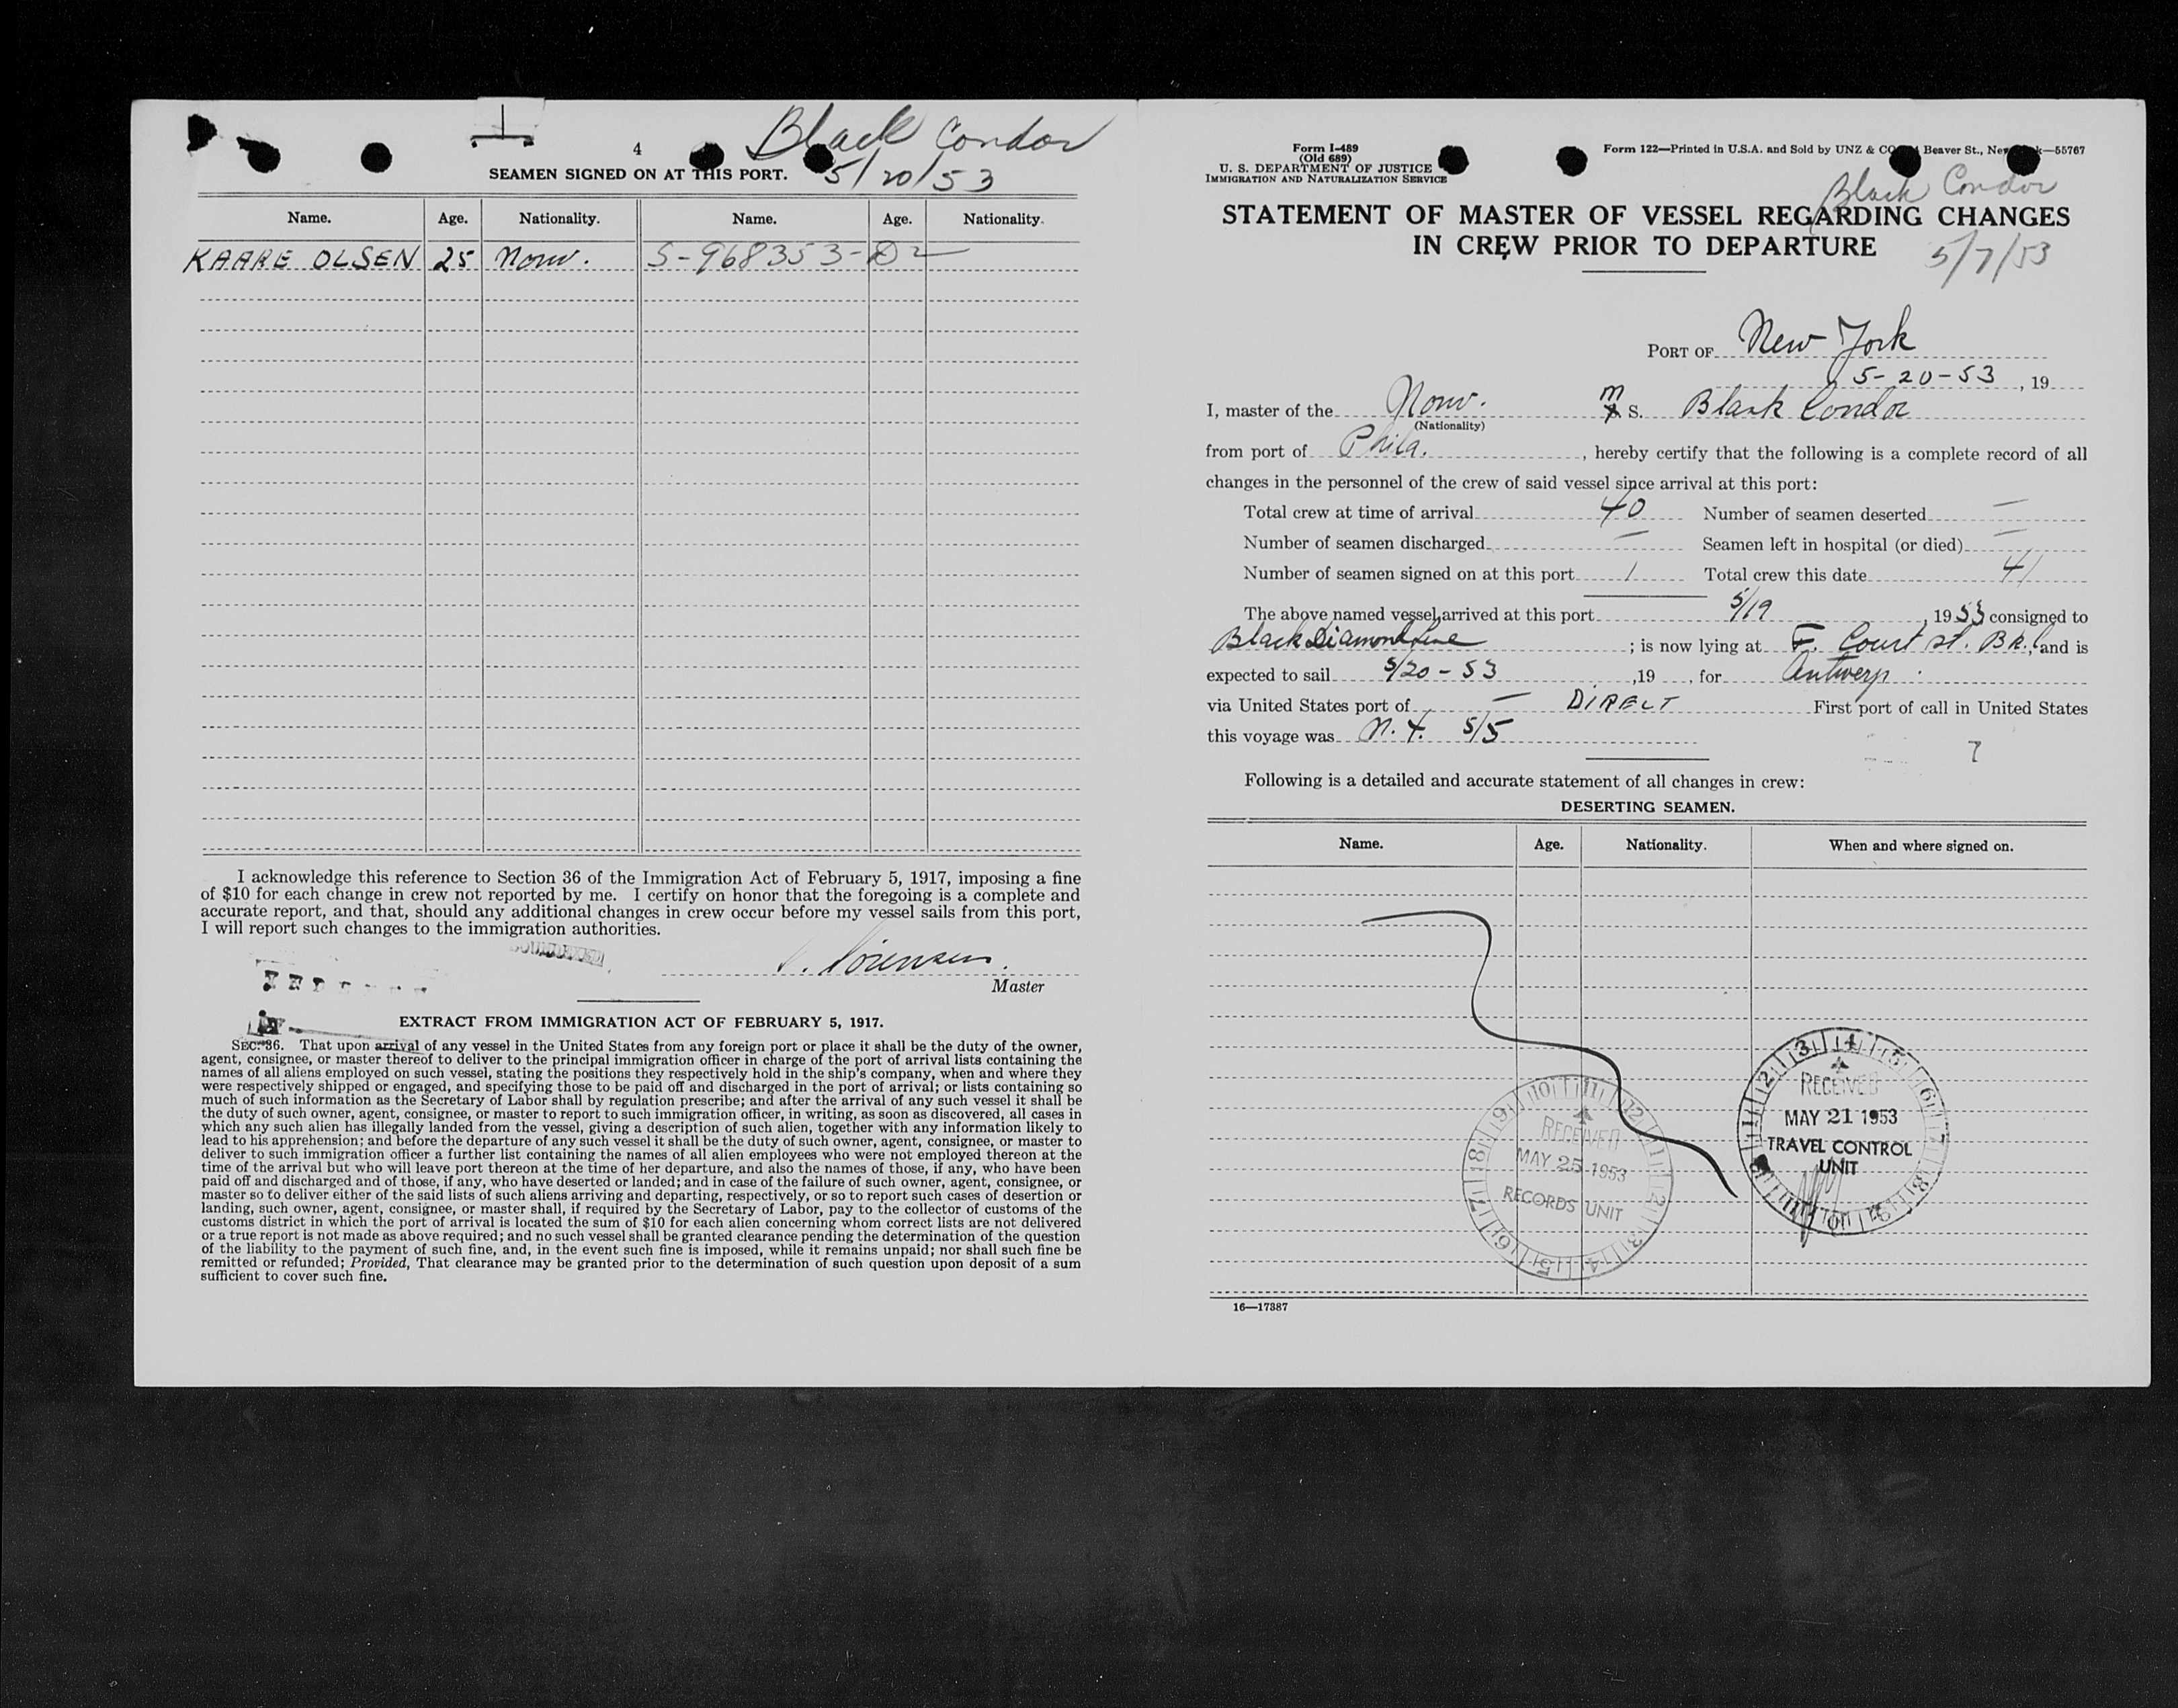 Black Condor
4
SEAMEN SIGNED ON AT THIS PORT.
5/20/53
Name. Age. Nationality. Name. Age. Nationality.
KAARE OLSEN 25 Norw. S-968353-D2
I acknowledge this reference to Section 36 of the Immigration Act of February 5, 1917, imposing a fine
of $10 for each change in crew not reported by me. I certify on honor that the foregoing is a complete and
accurate report, and that, should any additional changes in crew occur before my vessel sails from this port,
I will report such changes to the immigration authorities.
Sörensen
Master
EXTRACT FROM IMMIGRATION ACT OF FEBRUARY 5, 1917.
SEC. 36. That upon arrival of any vessel in the United States from any foreign port or place it shall be the duty of the owner,
agent, consignee, or master thereof to deliver to the principal immigration officer in charge of the port of arrival lists containing the
names of all aliens employed on such vessel, stating the positions they respectively hold in the ship's company, when and where they
were respectively shipped or engaged, and specifying those to be paid off and discharged in the port of arrival; or lists containing so
much of such information as the Secretary of Labor shall by regulation prescribe; and after the arrival of any such vessel it shall be
the duty of such owner, agent, consignee, or master to report to such immigration officer, in writing, as soon as discovered, all cases in
which any such alien has illegally landed from the vessel, giving a description of such alien, together with any information likely to
lead to his apprehension; and before the departure of any such vessel it shall be the duty of such owner, agent, consignee, or master to
deliver to such immigration officer a further list containing the names of all alien employees who were not employed thereon at the
time of the arrival but who will leave port thereon at the time of her departure, and also the names of those, if any, who have been
paid off and discharged and of those, if any, who have deserted or landed; and in case of the failure of such owner, agent, consignee, or
master so to deliver either of the said lists of such aliens arriving and departing, respectively, or so to report such cases of desertion or
landing, such owner, agent, consignee, or master shall, if required by the Secretary of Labor, pay to the collector of customs of the
customs district in which the port of arrival is located the sum of $10 for each alien concerning whom correct lists are not delivered
or a true report is not made as above required; and no such vessel shall be granted clearance pending the determination of the question
of the liability to the payment of such fine, and, in the event such fine is imposed, while it remains unpaid; nor shall such fine be
remitted or refunded; Provided, That clearance may be granted prior to the determination of such question upon deposit of a sum
sufficient to cover such fine.
Form I-489
(Old 689)
U. S. DEPARTMENT OF JUSTICE
IMMIGRATION AND NATURALIZATION SERVICE
Form 122—Printed in U.S.A. and Sold by UNZ & CO Beaver St., New —55767
Black Condor
STATEMENT OF MASTER OF VESSEL REGARDING CHANGES
IN CREW PRIOR TO DEPARTURE
5/7/53
PORT OF New York
5-20-53, 19
I, master of the Norw. M S. Black Condor
(Nationality)
from port of Phila., hereby certify that the following is a complete record of all
changes in the personnel of the crew of said vessel since arrival at this port:
Total crew at time of arrival 40 Number of seamen deserted —
Number of seamen discharged — Seamen left in hospital (or died) —
Number of seamen signed on at this port 1 Total crew this date 41
The above named vessel arrived at this port 5/19, 1953 consigned to
Black Diamond Line; is now lying at F. Court st. Bkl, and is
expected to sail 5/20-53, 19 , for Antwerp
via United States port of — DIRECT First port of call in United States
this voyage was N.Y. 5/5
7
Following is a detailed and accurate statement of all changes in crew:
DESERTING SEAMEN.
Name. Age. Nationality. When and where signed on.
RECEIVED
MAY 21 1953
TRAVEL CONTROL
UNIT
RECEIVED
MAY 25 1953
RECORDS UNIT
16—17387